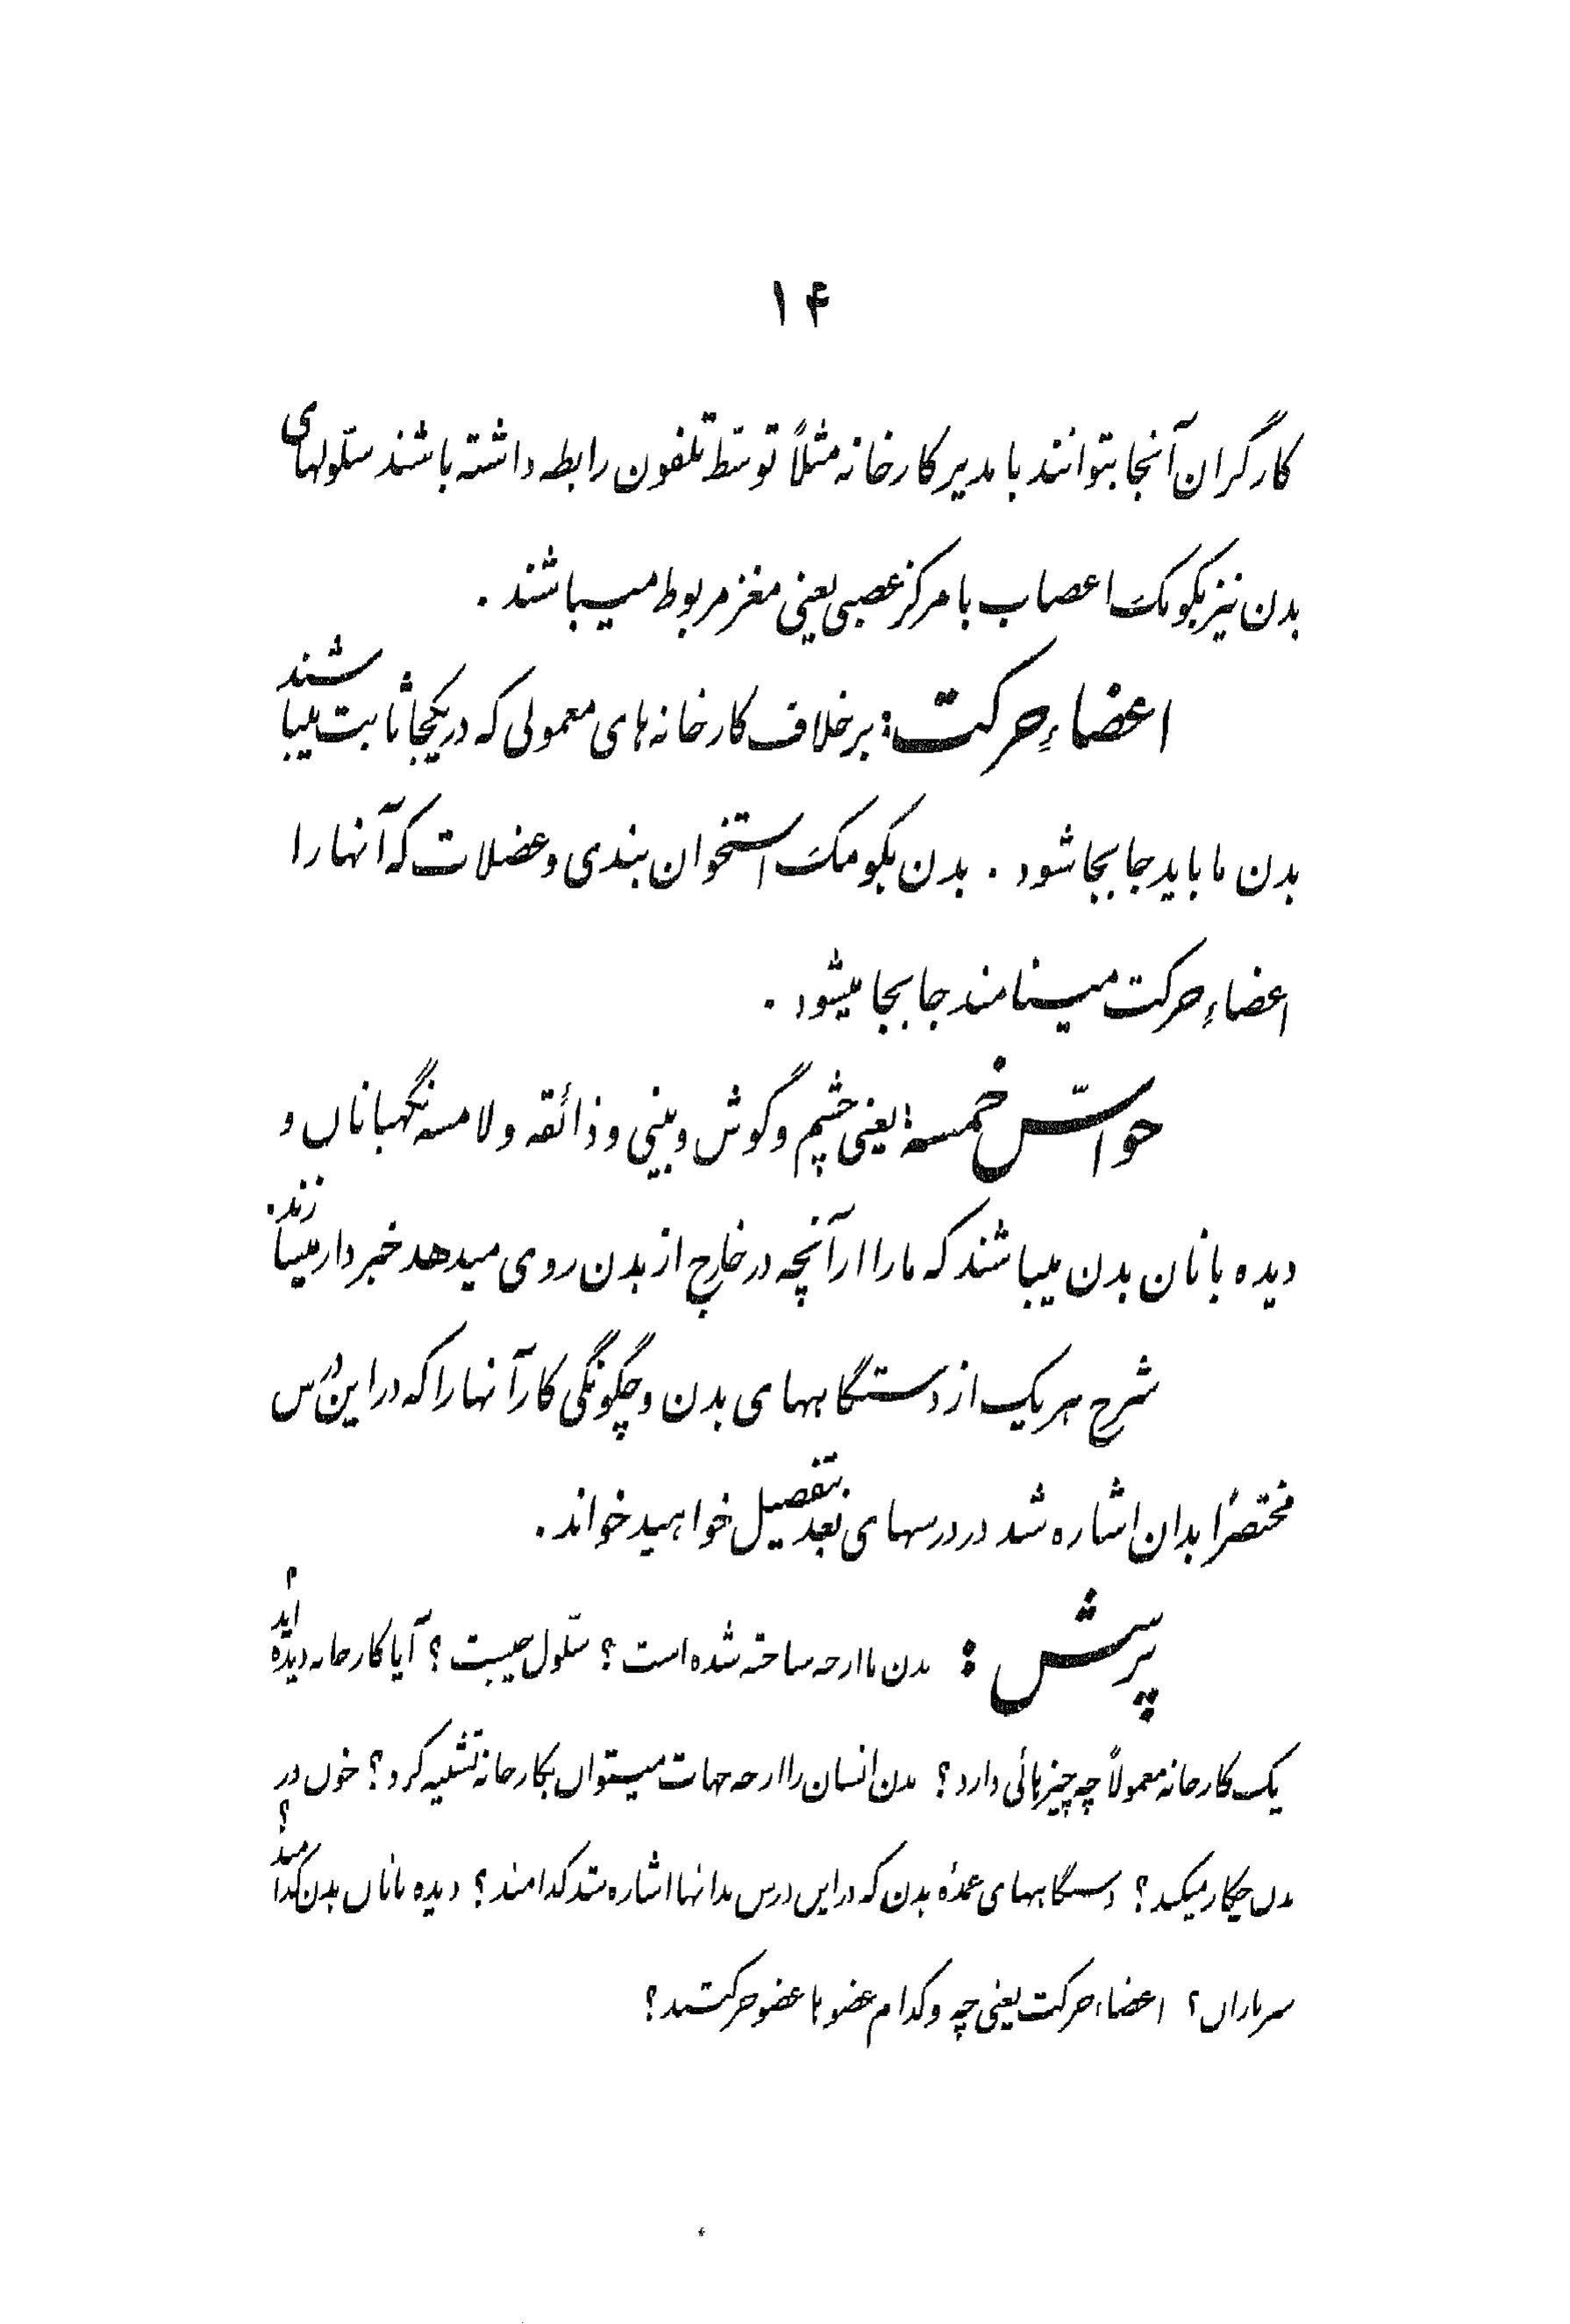 ۱۴
کارگران آنجا بتوانند با مدیر کارخانه مثلاً توسّط تلفون رابطه داشته باشند سلّولهای
بدن نیز بکومک اعصاب با مرکز عصبی یعنی مغز مربوط میباشند .
اعضاءِ حرکت : برخلاف کارخانه های معمولی که در یکجا ثابت میباشند
بدن ما باید جابجا شود . بدن بکومک استخوان بندی و عضلات که آنها را
اعضاءِ حرکت مینامند جابجا میشود .
حواسّ خمسه : یعنی چشم و گوش و بینی و ذائقه و لامسه نگهبانان و
دیده بانان بدن میباشند که ما را از آنچه در خارج از بدن روی میدهد خبردار میسازند .
شرح هر یک از دستگاههای بدن و چگونگی کار آنها را که در این درس
مختصراً بدان اشاره شد در درسهای بعد بتفصیل خواهید خواند .
پرسش : بدن ما از چه ساخته شده است ؟ سلّول چیست ؟ آیا کارخانه دیده اید ؟
یک کارخانه معمولاً چه چیزهائی دارد ؟ بدن انسان را از چه جهات میتوان بکارخانه تشبیه کرد ؟ خون در
بدن چکار میکند ؟ دستگاههای عمدهٔ بدن که در این درس بدانها اشاره شد کدامند ؟ دیده بانان بدن کدامند ؟
سربازان ؟ اعضاء حرکت یعنی چه و کدام عضوها عضو حرکتند ؟